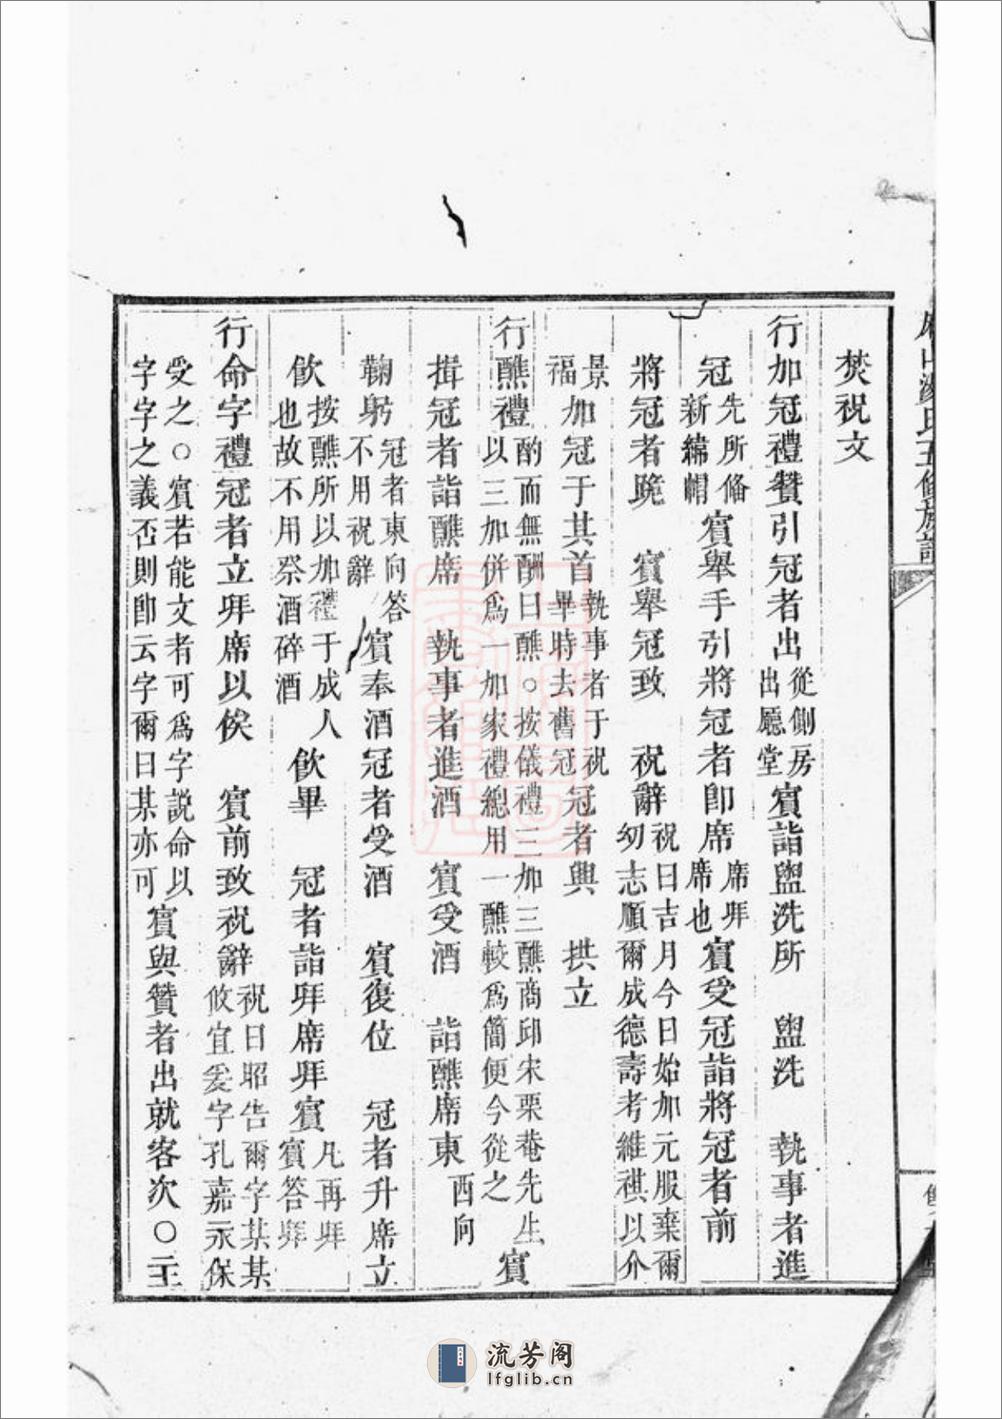 氏五修族譜
焚祝文
行加冠禮贊引冠者出從側房出廳堂賓詣盥洗所 盥洗 執事者進
冠先所俻新繡帽賓舉手引將冠者卽席席拜席也賓受冠詣將冠者前
將冠者跪 賓舉冠致 祝辭祝曰吉月今日始加元服棄爾幼志順爾成德壽考維祺以介
景福加冠于其首執事者于祝畢時去舊冠冠者興 拱立
行醮禮酌而無酬曰醮○按儀禮三加三醮商邱宋栗菴先生以三加併爲一加家禮總用一醮較爲簡便今從之賓
揖冠者詣醮席 執事者進酒 賓受酒 詣醮席東西向
鞠躬冠者東向答不用祝辭賓奉酒冠者受酒 賓復位 冠者升席立
飲按醮所以加禮于成人也故不用祭酒碎酒飲畢 冠者詣拜席拜賓凡再拜賓答拜
行命字禮冠者立拜席以俟 賓前致祝辭祝曰昭告爾字某某攸宜爰字孔嘉永保
受之○賓若能文者可爲字説命以字字之義否則卽云字爾曰某亦可賓與贊者出就客次○主
流芳阁
lfglib.cn